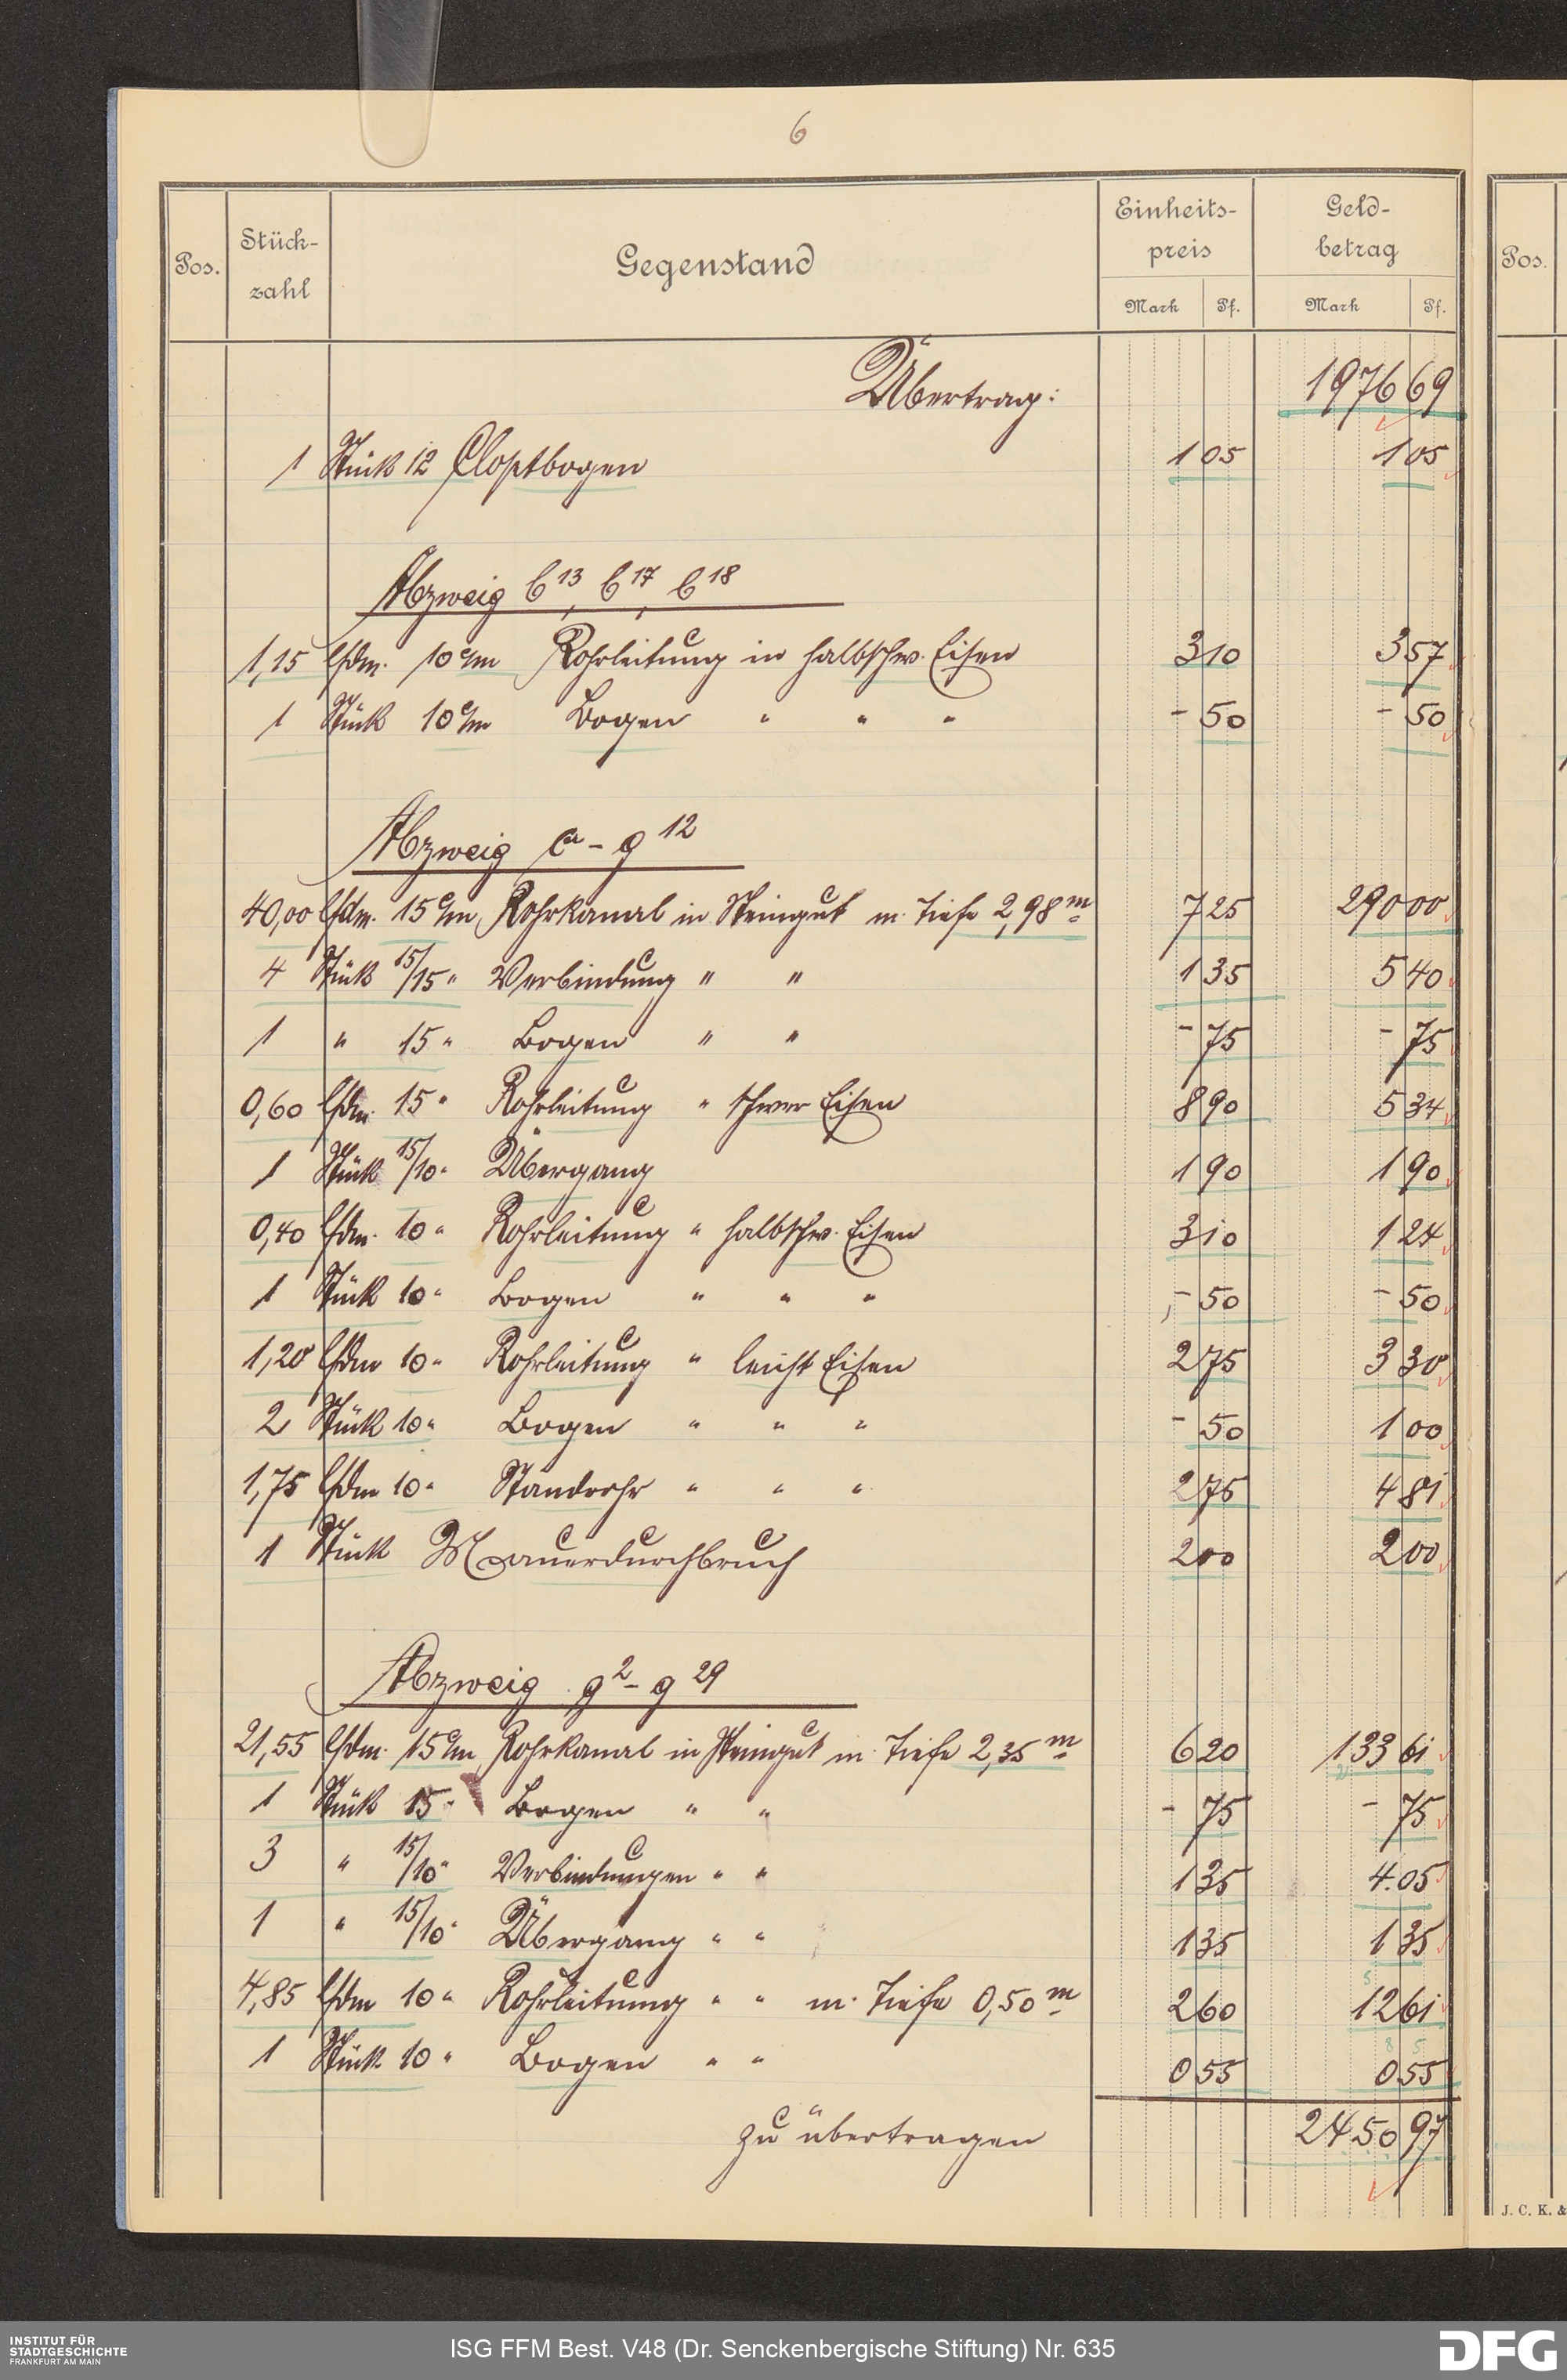 6
Pos. Stück- zahl Gegenstand Einheits- preis Geld- betrag Pos.
Mark Pf. Mark Pf.
Übertrag: 1976 69
1 Stück 12 Closetbogen 1 05 1 05
Abzweig b13, b17, b18
1,15 lfdm. 10 c/m Rohrleitung in halbschw. Eisen 3 10 3 57
1 Stück 10 c/m Bogen " " " - 50 - 50
Abzweig a - g12
40,00 lfdm. 15 c/m Rohrkanal in Steingut m. Tiefe 2,98 m 7 25 290 00
4 Stück 15/15 " Verbindung " " 1 35 5 40
1 " 15 " Bogen " " - 75 - 75
0,60 lfdm. 15 " Rohrleitung " schwer Eisen 8 90 5 34
1 Stück 15/10 " Übergang 1 90 1 90
0,40 lfdm. 10 " Rohrleitung " halbschw. Eisen 3 10 1 24
1 Stück 10 " Bogen " " " - 50 - 50
1,20 lfdm 10 " Rohrleitung " leicht Eisen 2 75 3 30
2 Stück 10 " Bogen " " " - 50 1 00
1,75 lfdm 10 " Standrohr " " " 2 75 4 81
1 Stück Mauerdurchbruch 2 00 2 00
Abzweig g2 - g29
21,55 lfdm. 15 c/m Rohrkanal in Steingut m. Tiefe 2,35 m 6 20 133 61
1 Stück 15 " Bogen " " - 75 - 75
3 " 15/10 " Verbindungen " " 1 35 4.05
1 " 15/10 " Übergang " " 1 35 1 35
4,85 lfdm 10 " Rohrleitung " " m. Tiefe 0,50 m 2 60 12 61
1 Stück 10 " Bogen " " 0 55 0 55
zu übertragen 2450 97
J. C. K. &
INSTITUT FÜR
STADTGESCHICHTE
FRANKFURT AM MAIN
ISG FFM Best. V48 (Dr. Senckenbergische Stiftung) Nr. 635
DFG